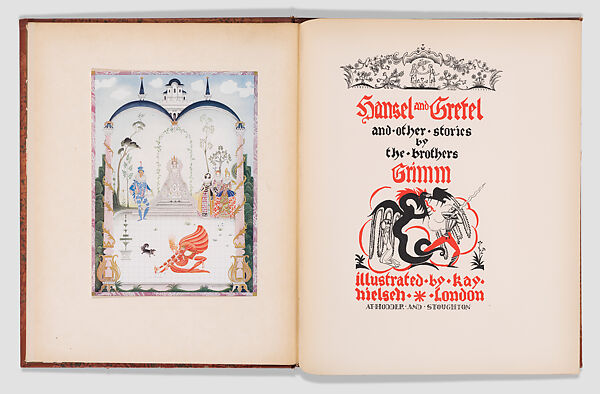 Hansel and Gretel
and·other·stories
by
the·brothers
Grimm
illustrated·by·Kay·
Nielsen·*·London
AT·HODDER·AND·STOUGHTON